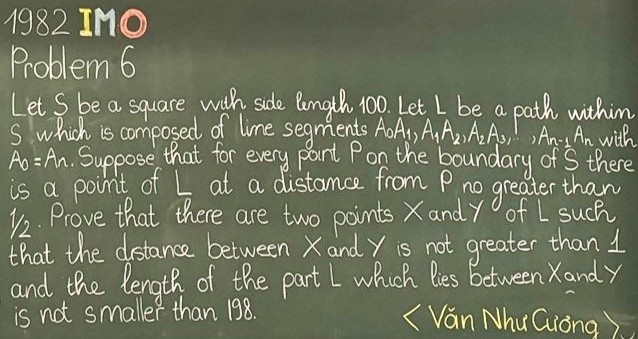 1982 IMO
Problem 6
Let S be a square with side length 100. Let L be a path within
S which is composed of line segments A₀A₁, A₁A₂, A₂A₃, ..., Aₙ₋₁Aₙ with
A₀ = Aₙ. Suppose that for every point P on the boundary of S there
is a point of L at a distance from P no greater than
1/2. Prove that there are two points X and Y of L such
that the distance between X and Y is not greater than 1
and the length of the part L which lies between X and Y
is not smaller than 198.
< Văn Như Cương >